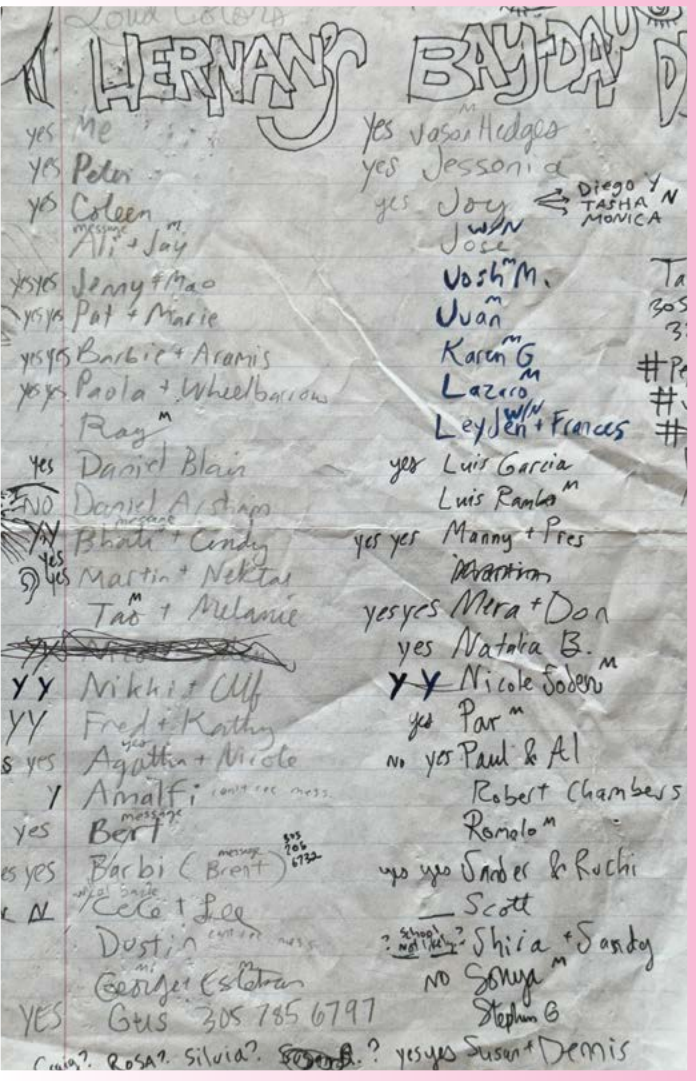 Loud Colors
HERNAN'S BAY-DAY
yes Me
yes Peter
yes Coleen
message m
Ali + Jay
yes yes Jenny + Mao
yes yes Pat + Marie
yes yes Barbie + Aramis
yes yes Paola + Wheelbarrow
Ray M
yes Daniel Blair
NO Daniel Arsham
message
YY Bhati + Cindy
yes yes Martin + Nektar
Tao M + Melanie
YY
YY Nikki + Ulf
YY Fred + Kathy
yes
s yes Agatha + Nicole
Y Amalfi can't rec mess.
message
yes Bert
es yes Barbi (message Brent) 305 206 6732
N CeCe + Lee
Dustin can't rec mess
m m
George Esteban
YES Gus 305 785 6797
Craig? ROSA? Silvia? ?
M
yes Jason Hedges
yes Jessenia
yes Joy Diego Y
TASHA N
MONICA
W/N
Jose
Josh M M.
Juan M
Karen G M
Lazaro M
W/N
Leyden + Frances
yes Luis Garcia
Luis Rambo M
yes yes Manny + Pres
yes yes Mera + Don
yes Natalia B.
Y Y Nicole Soden M
yes Par M
No yes Paul & Al
Robert Chambers
Romolo M
yes yes Sander & Ruchi
Scott
? School not likely? Shira + Sandy
NO Sonya M
Stephen G
yes yes Susan + Dennis
D
Ta
305
3
#Pe
#
#